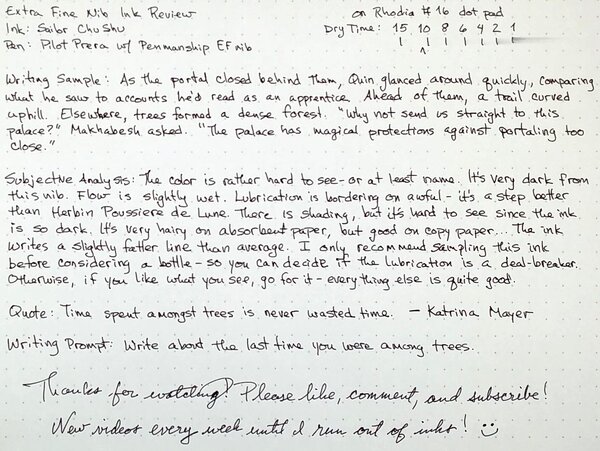 Extra Fine Nib Ink Review
on Rhodia #16 dot pad
Ink: Sailor Chu Shu
Dry Time: 15 10 8 6 4 2 1
Pen: Pilot Prera w/ Penmanship EF nib
Writing Sample: As the portal closed behind them, Quin glanced around quickly, comparing
what he saw to accounts he'd read as an apprentice. Ahead of them, a trail curved
uphill. Elsewhere, trees formed a dense forest. "Why not send us straight to this
palace?" Makhabesh asked. "The palace has magical protections against portaling too
close."
Subjective Analysis: The color is rather hard to see - or at least name. It's very dark from
this nib. Flow is slightly wet. Lubrication is bordering on awful - it's a step better
than Herbin Poussiere de Lune. There is shading, but it's hard to see since the ink
is so dark. It's very hairy on absorbent paper, but good on copy paper... The ink
writes a slightly fatter line than average. I only recommend sampling this ink
before considering a bottle - so you can decide if the lubrication is a deal-breaker.
Otherwise, if you like what you see, go for it - everything else is quite good.
Quote: Time spent amongst trees is never wasted time. - Katrina Mayer
Writing Prompt: Write about the last time you were among trees.
Thanks for watching! Please like, comment, and subscribe!
New videos every week until I run out of inks! :)